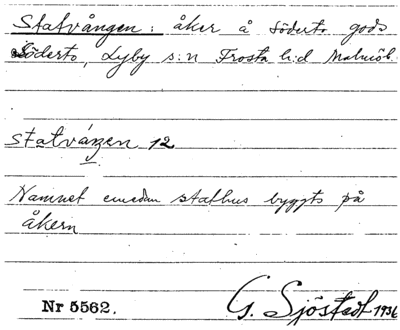 Statvången: åker å Söderto gods
Söderto, Lyby s:n Frosta h:d Malmöh.
statváŋen 12
Namnet emedan stathus byggts på
åkern
Nr 5562. G. Sjöstedt 1936